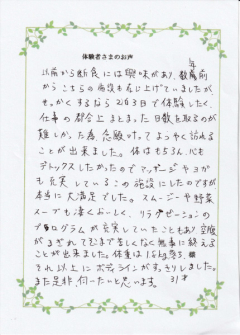 体験者さまのお声
以前から断食には興味があり、数年前
からこちらの施設も存じ上げていましたが、
せっかくするなら2泊3日で体験したく、
仕事の都合上まとまった日数を取るのが
難しかった為、念願叶ってようやく訪れる
ことが出来ました。体はもちろん、心も
デトックスしたかったのでマッサージやヨガ
も充実しているこの施設にしたのですが
本当に大満足でした。スムージーや野菜
スープも凄くおいしく、リラクゼーションの
プログラムが充実していたこともあり空腹
がまぎれてむしろ苦しくなく無事に終える
ことが出来ました。体重は1.6kg落ち、
それ以上にボディラインがすっきりしました。
また是非伺いたいと思います。 31才